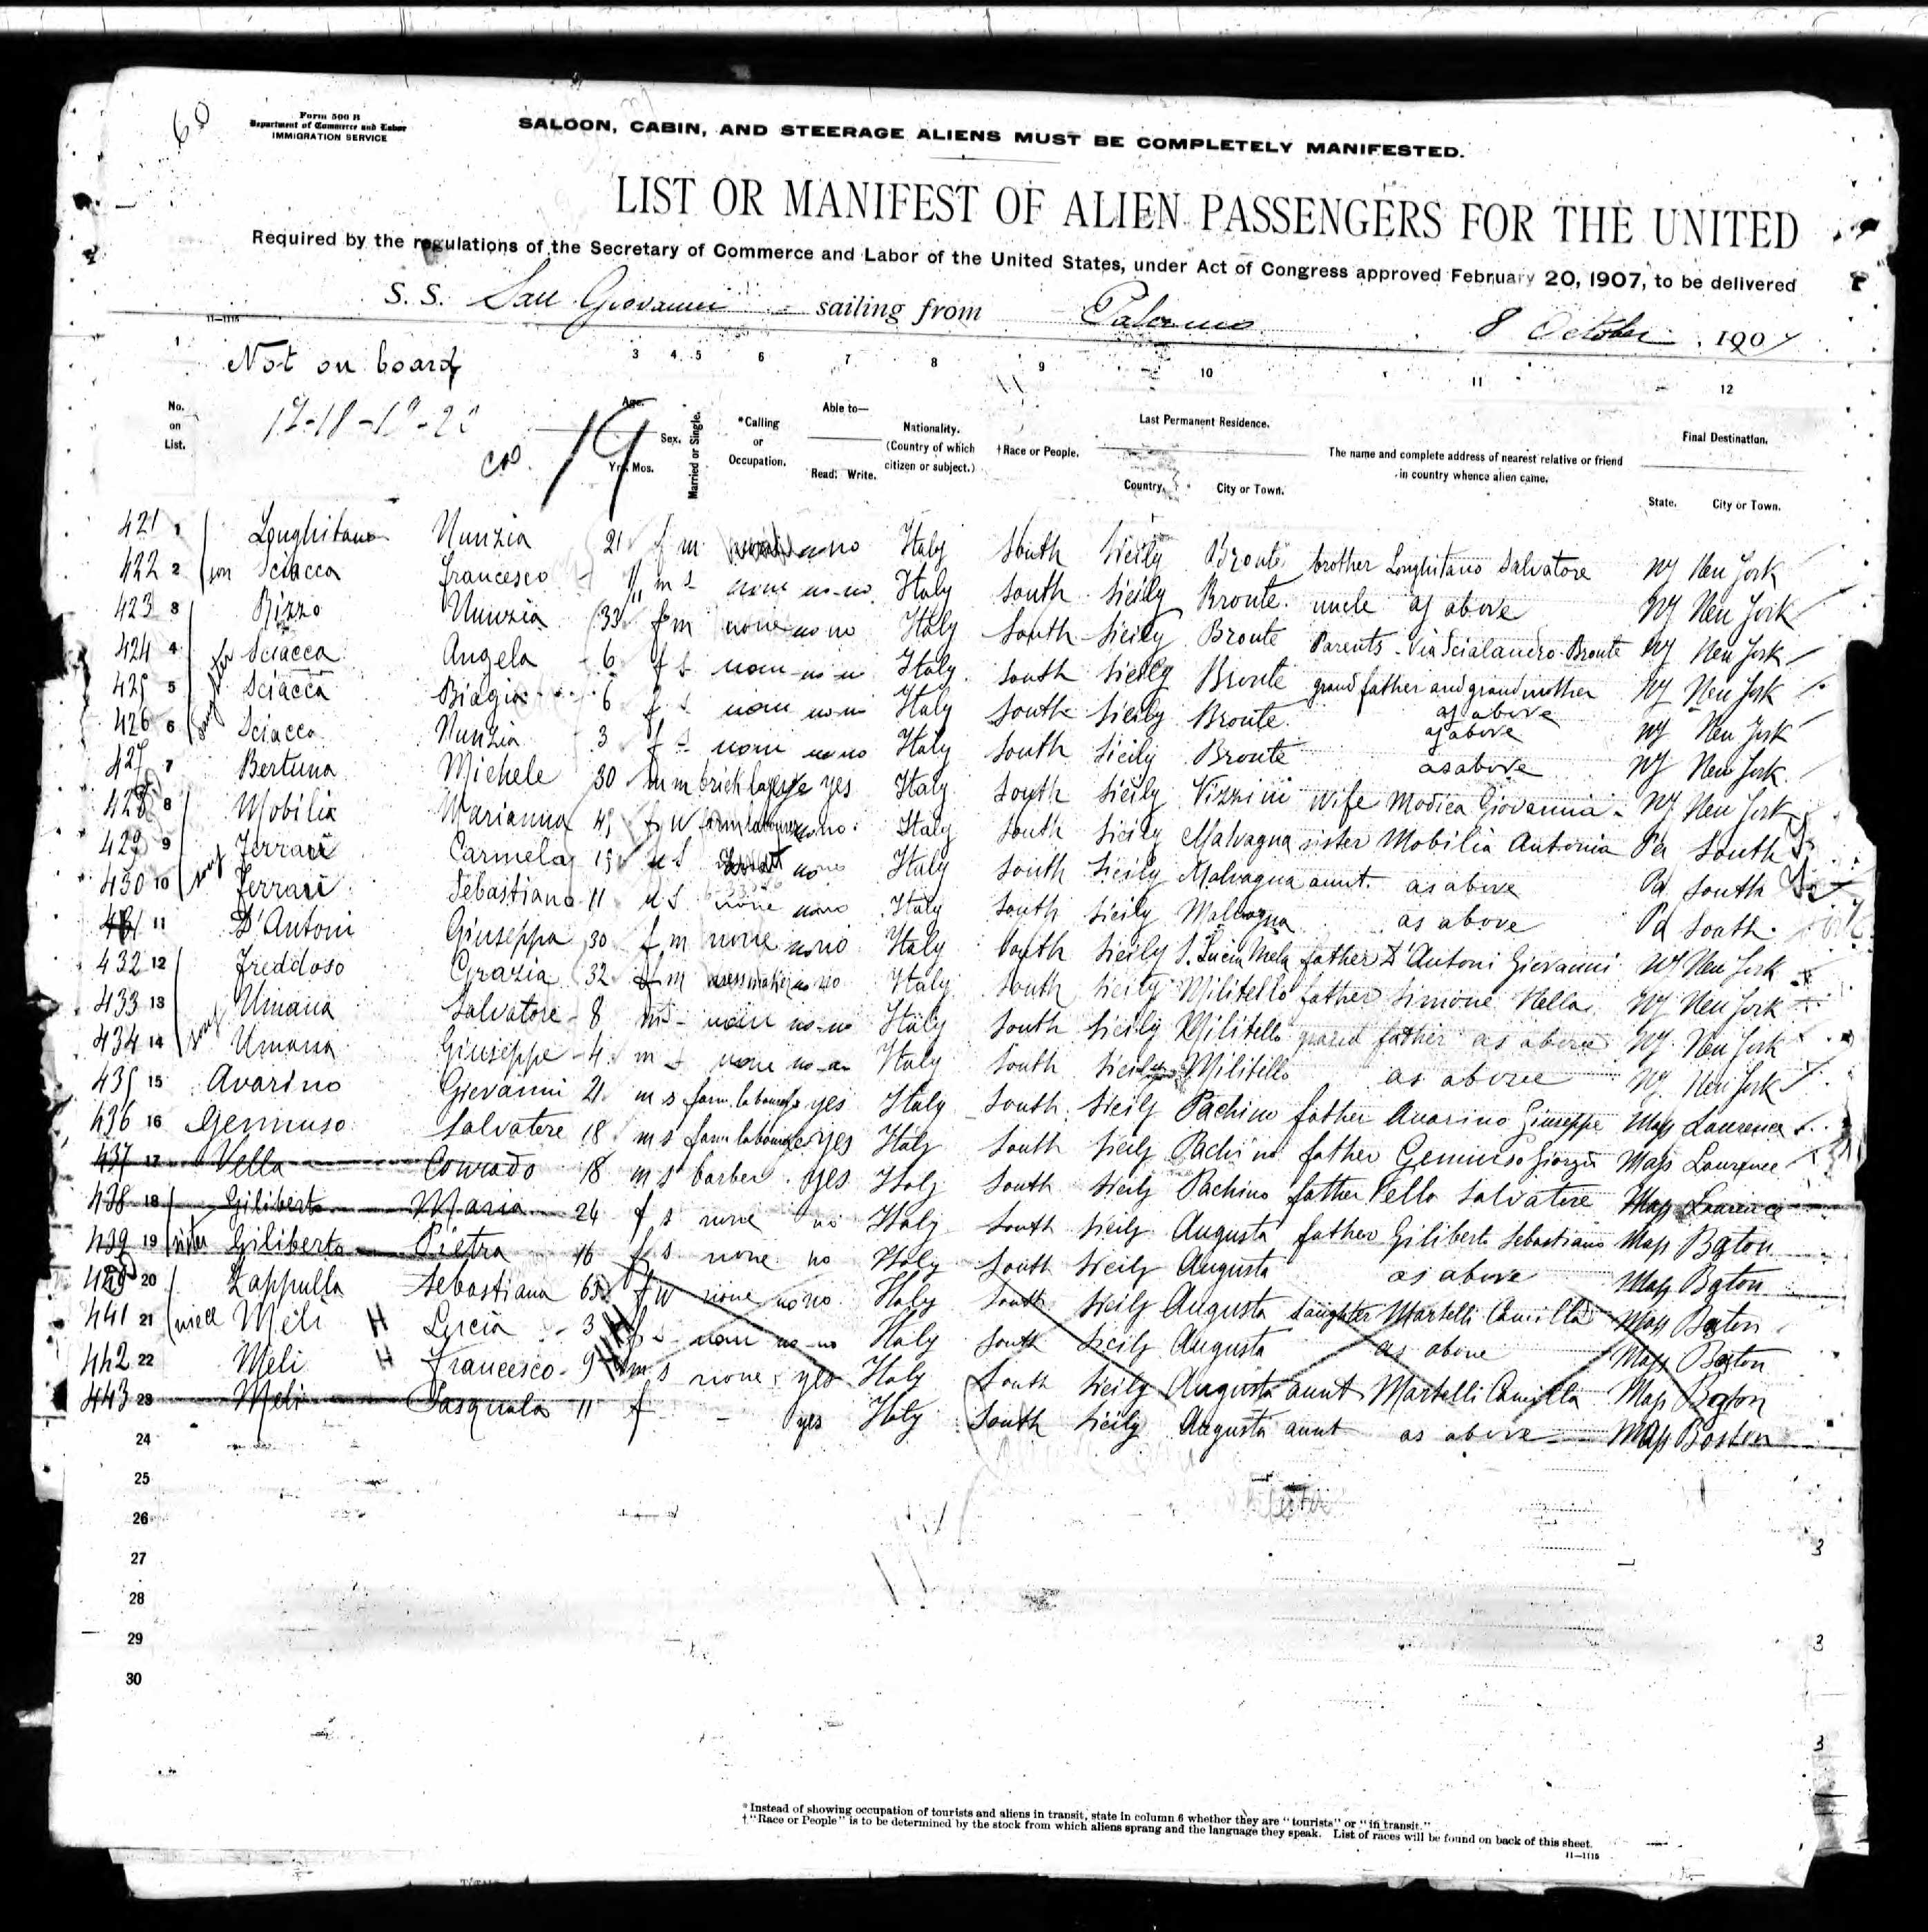 60
Form 500 B
Department of Commerce and Labor
IMMIGRATION SERVICE
SALOON, CABIN, AND STEERAGE ALIENS MUST BE COMPLETELY MANIFESTED.
LIST OR MANIFEST OF ALIEN PASSENGERS FOR THE UNITED
Required by the regulations of the Secretary of Commerce and Labor of the United States, under Act of Congress approved February 20, 1907, to be delivered
S. S. San Giovanni sailing from Palermo 8 October 1907
11—1115
1 3 4 5 6 7 8 9 10 11 12
Not on board
17-18-19-20
19
No. on List. Age. Yrs. Mos. Sex. Married or Single. *Calling or Occupation. Able to— Read. Write. Nationality. (Country of which citizen or subject.) †Race or People. Last Permanent Residence. Country. City or Town. The name and complete address of nearest relative or friend in country whence alien came. Final Destination. State. City or Town.
421 1 Longhitano Nunzia 21 f m no no Italy South Sicily Bronte brother Longhitano Salvatore NY New York
422 2 son Sciacca Francesco 11 m s none no-no Italy South Sicily Bronte uncle as above NY New York
423 3 Rizzo Nunzia 33 f m none no no Italy South Sicily Bronte Parents - Via Scialandro - Bronte NY New York
424 4 daughter Sciacca Angela 6 f s none no no Italy South Sicily Bronte grand father and grand mother as above NY New York
425 5 Sciacca Biagia 6 f s none no no Italy South Sicily Bronte as above NY New York
426 6 Sciacca Nunzia 3 f s none no no Italy South Sicily Bronte as above NY New York
427 7 Bertuna Michele 30 m m brick layer yes Italy South Sicily Vizzini wife Modica Giovannia NY New York
428 8 Mobilia Marianna 45 f w farm labourer no no Italy South Sicily Malvagna sister Mobilia Antonia Pa South
429 9 Ferrari Carmela 15 s no no Italy South Sicily Malvagna aunt as above Pa South
430 10 Ferrari Sebastiano 11 s none no no Italy South Sicily Malvagna as above Pa South
431 11 D'Antoni Giuseppa 30 f m none no no Italy South Sicily S. Lucia Mela father D'Antoni Giovanni NY New York
432 12 Freddoso Grazia 32 f m dressmaker no no Italy South Sicily Militello father Simone Nella NY New York
433 13 Umana Salvatore 8 m s none no-no Italy South Sicily Militello grand father as above NY New York
434 14 Umana Giuseppe 4 m s none no-no Italy South Sicily Militello as above NY New York
435 15 Avarino Giovanni 21 m s farm labourer yes Italy South Sicily Pachino father Avarino Giuseppe Mass Laurence
436 16 Gennuso Salvatore 18 m s farm labourer yes Italy South Sicily Pachino father Gennuso Giorgio Mass Laurence
437 17 Vella Conrado 18 m s barber yes Italy South Sicily Pachino father Vella Salvatore Mass Laurence
438 18 Giliberto Maria 24 f s none no Italy South Sicily Augusta father Giliberto Sebastiano Mass Boston
439 19 sister Giliberto Pietra 16 f s none no Italy South Sicily Augusta as above Mass Boston
440 20 Zappulla Sebastiana 65 f w none no no Italy South Sicily Augusta daughter Martelli Camilla Mass Boston
441 21 niece Meli H Lucia 3 f s none no-no Italy South Sicily Augusta as above Mass Boston
442 22 Meli H Francesco 9 m s none yes Italy South Sicily Augusta aunt Martelli Camilla Mass Boston
443 23 Meli Pasquala 11 f - yes Italy South Sicily Augusta aunt as above Mass Boston
24
25
26
27
28
29
30
3
3
3
*Instead of showing occupation of tourists and aliens in transit, state in column 6 whether they are "tourists" or "in transit."
†"Race or People" is to be determined by the stock from which aliens sprang and the language they speak. List of races will be found on back of this sheet.
11—1115